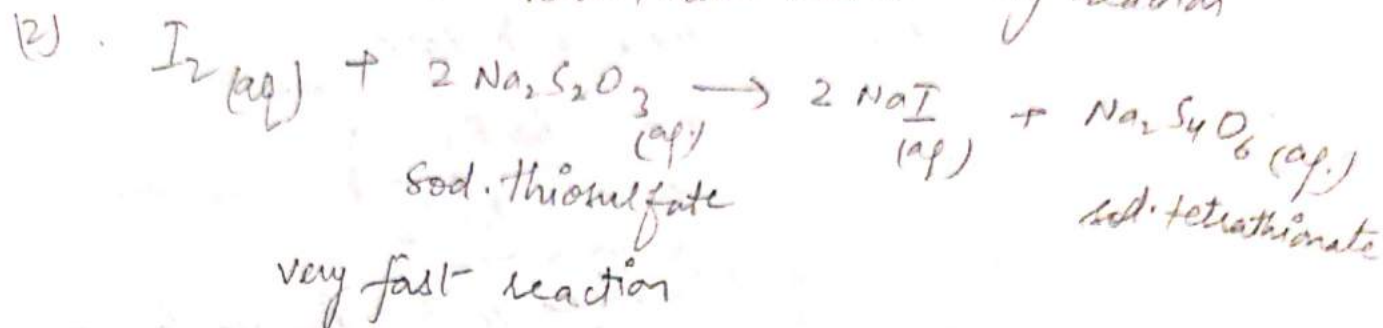 (2). I2 (aq) + 2 Na2S2O3 (aq.) → 2 NaI (aq) + Na2S4O6 (aq.)
sod. thiosulfate
sod. tetrathionate
very fast reaction